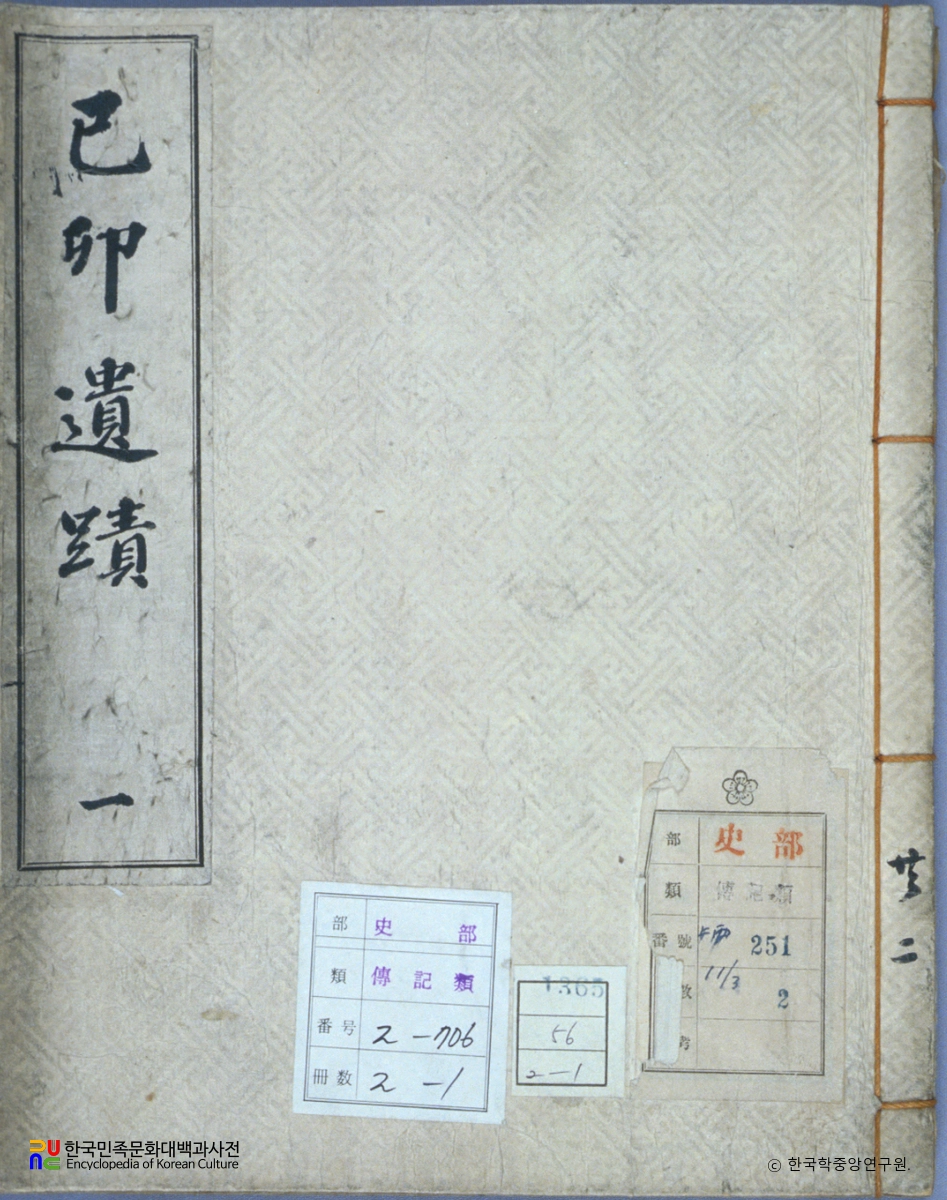 己卯遺蹟 一
共二
部 史部
類 傳記類
番号 2-706
冊数 2-1
1365
56
2-1
部 史部
類 傳記類
番號 251
11/3
數 2
考
한국민족문화대백과사전
Encyclopedia of Korean Culture
ⓒ 한국학중앙연구원.